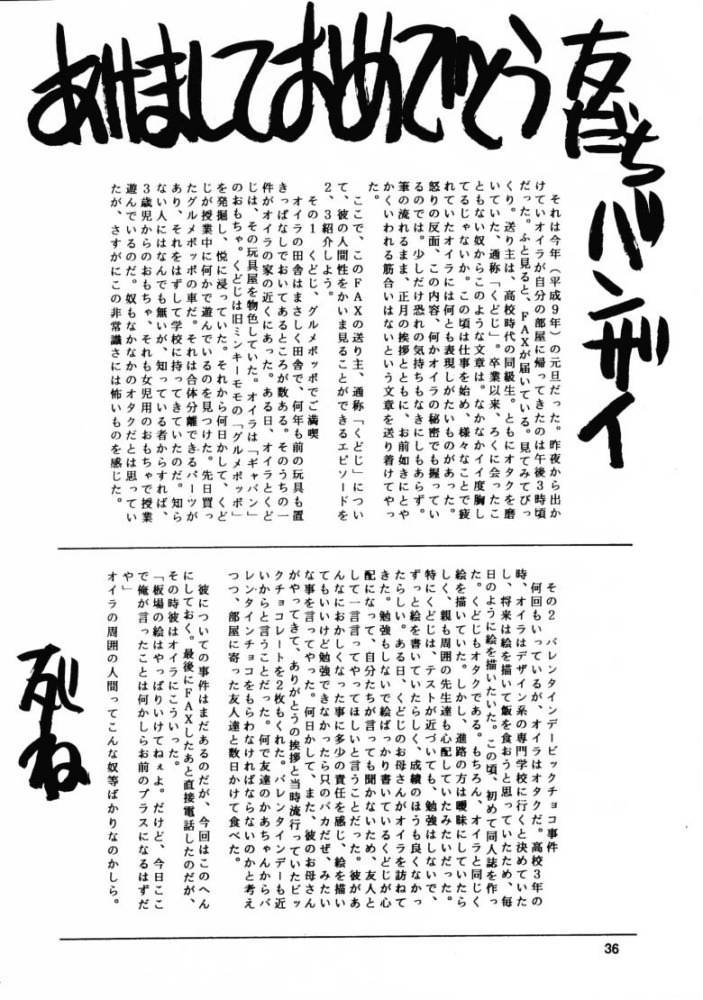 あけましておめでとう
友だちバンザイ
それは今年(平成9年)の元旦だった。昨夜から出か
けていオイラが自分の部屋に帰ってきたのは午後3時頃
だった。ふと見ると、FAXが届いている。見てみてびっ
くり。送り主は、高校時代の同級生。ともにオタクを磨
いていた、通称「くどじ」。卒業以来、ろくに会ったこ
ともない奴からこのような文章は。なかなかイイ度胸し
てるじゃないか。この頃は仕事を始め、様々なことで疲
れていたオイラには何とも表現しがたいものがあった。
怒りの反面、この内容、何かオイラの秘密でも握ってい
るのでは。少しだけ恐れの気持ちもなきにしもあらず。
筆の流れるまま、正月の挨拶とともに、お前如きにとや
かくいわれる筋合いはないという文章を送り着けてやっ
た。
ここで、このFAXの送り主、通称「くどじ」につい
て、彼の人間性をかいま見ることができるエピソードを
2、3紹介しよう。
その1 くどじ、グルメポッポでご満喫
オイラの田舎はまさしく田舎で、何年も前の玩具も置
きっぱなしでおいてあるところが数ある。そのうちの一
件がオイラの家の近くにあった。ある日、オイラとくど
じは、その玩具屋を物色していた。オイラは「ギャバン」
のおもちゃ。くどじは旧ミンキーモモの「グルメポッポ」
を発掘し、悦に浸っていた。それから何日かして、くど
じが授業中に何かで遊んでいるのを見つけた。先日買っ
たグルメポッポの車だ。それは合体分離できるパーツが
あり、それをはずして学校に持ってきていたのだ。知ら
ない人にはなんでも無いが、知っている者からすれば、
3歳児からのおもちゃ、それも女児用のおもちゃで授業
遊んでいるのだ。奴もなかなかのオタクだとは思ってい
たが、さすがにこの非常識さには怖いものを感じた。
その2 バレンタインデービックチョコ事件
何回もいっているが、オイラはオタクだ。高校3年の
時、オイラはデザイン系の専門学校に行くと決めていた
し、将来は絵を描いて飯を食おうと思っていたため、毎
日のように絵を描いたいた。この頃、初めて同人誌を作っ
た。くどじもオタクである。もちろん、オイラと同じく
絵を描いていた。しかし、進路の方は曖昧にしていたら
しく、親も周囲の先生達も心配していたみたいだった。
特にくどじは、テストが近づいても、勉強はしないで、
ずっと絵を書いていたらしく、成績のほうも良くなかっ
たらしい。ある日、くどじのお母さんがオイラを訪ねて
きた。勉強もしないで絵ばっかり書いているくどじが心
配になって、自分たちが言っても聞かないため、友人と
して一言言ってやってほしいと言うことだった。彼があ
んなにおかしくなった事に多少の責任を感じ、絵を描い
てもいいけど勉強できなかったら只のバカだぜ、みたい
な事を言ってやった。何日かして、また、彼のお母さん
がやってきて、ありがとうの挨拶と当時流行っていたビッ
クチョコレートを2枚もくれた。バレンタインデーも近
いからと言うことだった。何で友達のかあちゃんからバ
レンタインチョコをもらわなければならないのかと考え
つつ、部屋に寄った友人達と数日かけて食べた。
彼についての事件はまだあるのだが、今回はこのへん
にしておく。最後にFAXしたあと直接電話したのだが、
その時彼はオイラにこういった。
「板場の絵はやっぱりいけてねぇよ。だけど、今日ここ
で俺が言ったことは何かしらお前のプラスになるはずだ
や」
オイラの周囲の人間ってこんな奴等ばかりなのかしら。
死ね
36